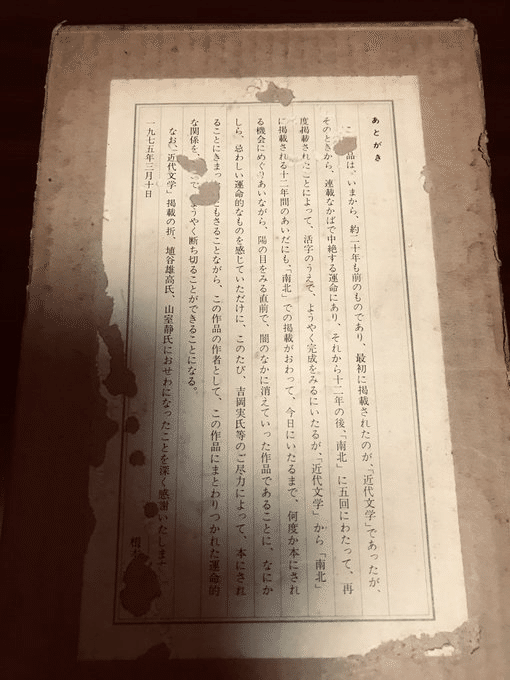 あとがき
こ 品は、いまから、約二十年も前のものであり、最初に掲載されたのが、「近代文学」であったが、
そのときから、連載なかばで中絶する運命にあり、それから十二年の後、「南北」に五回にわたって、再
度掲載されたことによって、活字のうえで、ようやく完成をみるにいたるが、「近代文学」から「南北」
に掲載される十二年間のあいだにも、「南北」での掲載がおわって、今日にいたるまで、何度か本にされ
る機会にめぐりあいながら、陽の目をみる直前で、闇のなかに消えていった作品であることに、なにか
しら、忌わしい運命的なものを感じていただけに、このたび、吉岡実氏等のご尽力によって、本にされ
ることにきまっ ともさることながら、この作品の作者として、この作品にまとわりつかれた運命的
な関係を、 で、ようやく断ち切ることができることになる。
なお、「近代文学」掲載の折、埴谷雄高氏、山室静氏におせわになったことを深く感謝いたしま
一九七五年三月十日